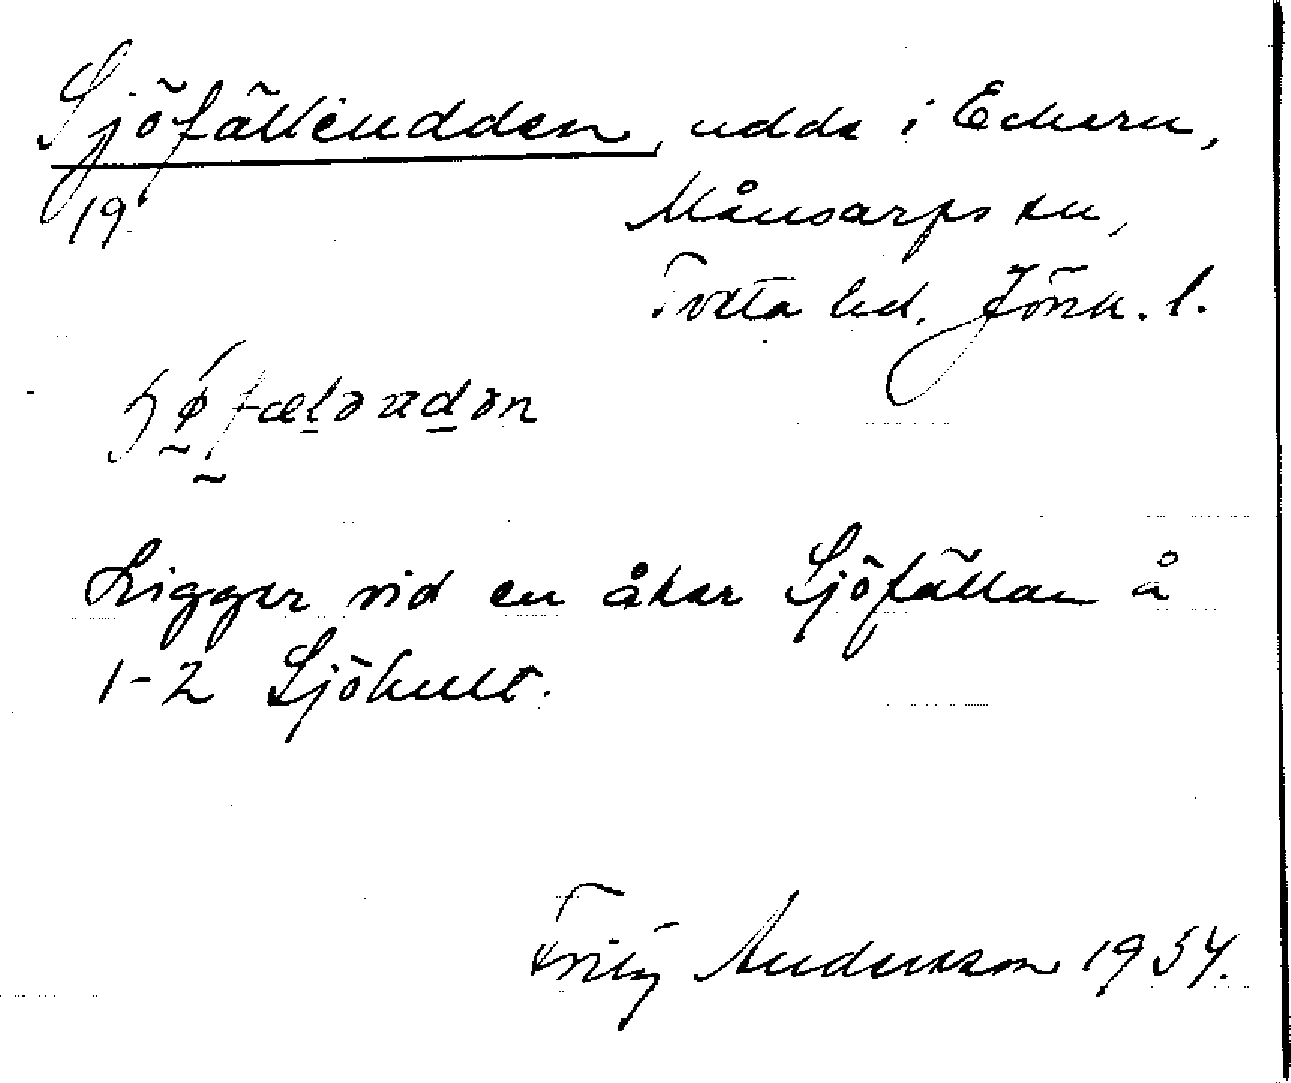 Sjöfälleudden, udde i Eckern,
19 Månsarps sn,
Tveta hd. Jönk. l.
Ligger vid en åker Sjöfällan å
1-2 Sjöhult.
Fritz Anderson 1954.